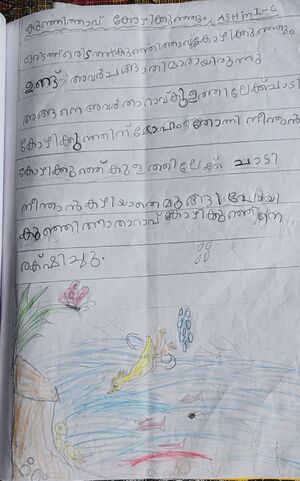 കുഞ്ഞിത്താവ് കോഴിക്കുഞ്ഞും. ASHMI I-C
ഒരിടത്ത് ഒരിടത്ത് കുഞ്ഞിത്താവ് കോഴിക്കുഞ്ഞും
ഉണ്ട് അവർ ചങ്ങാതിമാരായിരുന്നു
അങ്ങനെ അവർ താറാവ് കുളത്തിലേക്ക് ചാടി
കോഴിക്കുഞ്ഞിന് മോഹം തോന്നി നീന്താൻ
കോഴിക്കുഞ്ഞ് കുളത്തിലേക്ക് ചാടി
നീന്താൻ കഴിയാതെ മുങ്ങി പോയി
കുഞ്ഞിത്താറാവ് കോഴിക്കുഞ്ഞിനെ
രക്ഷിച്ചു.